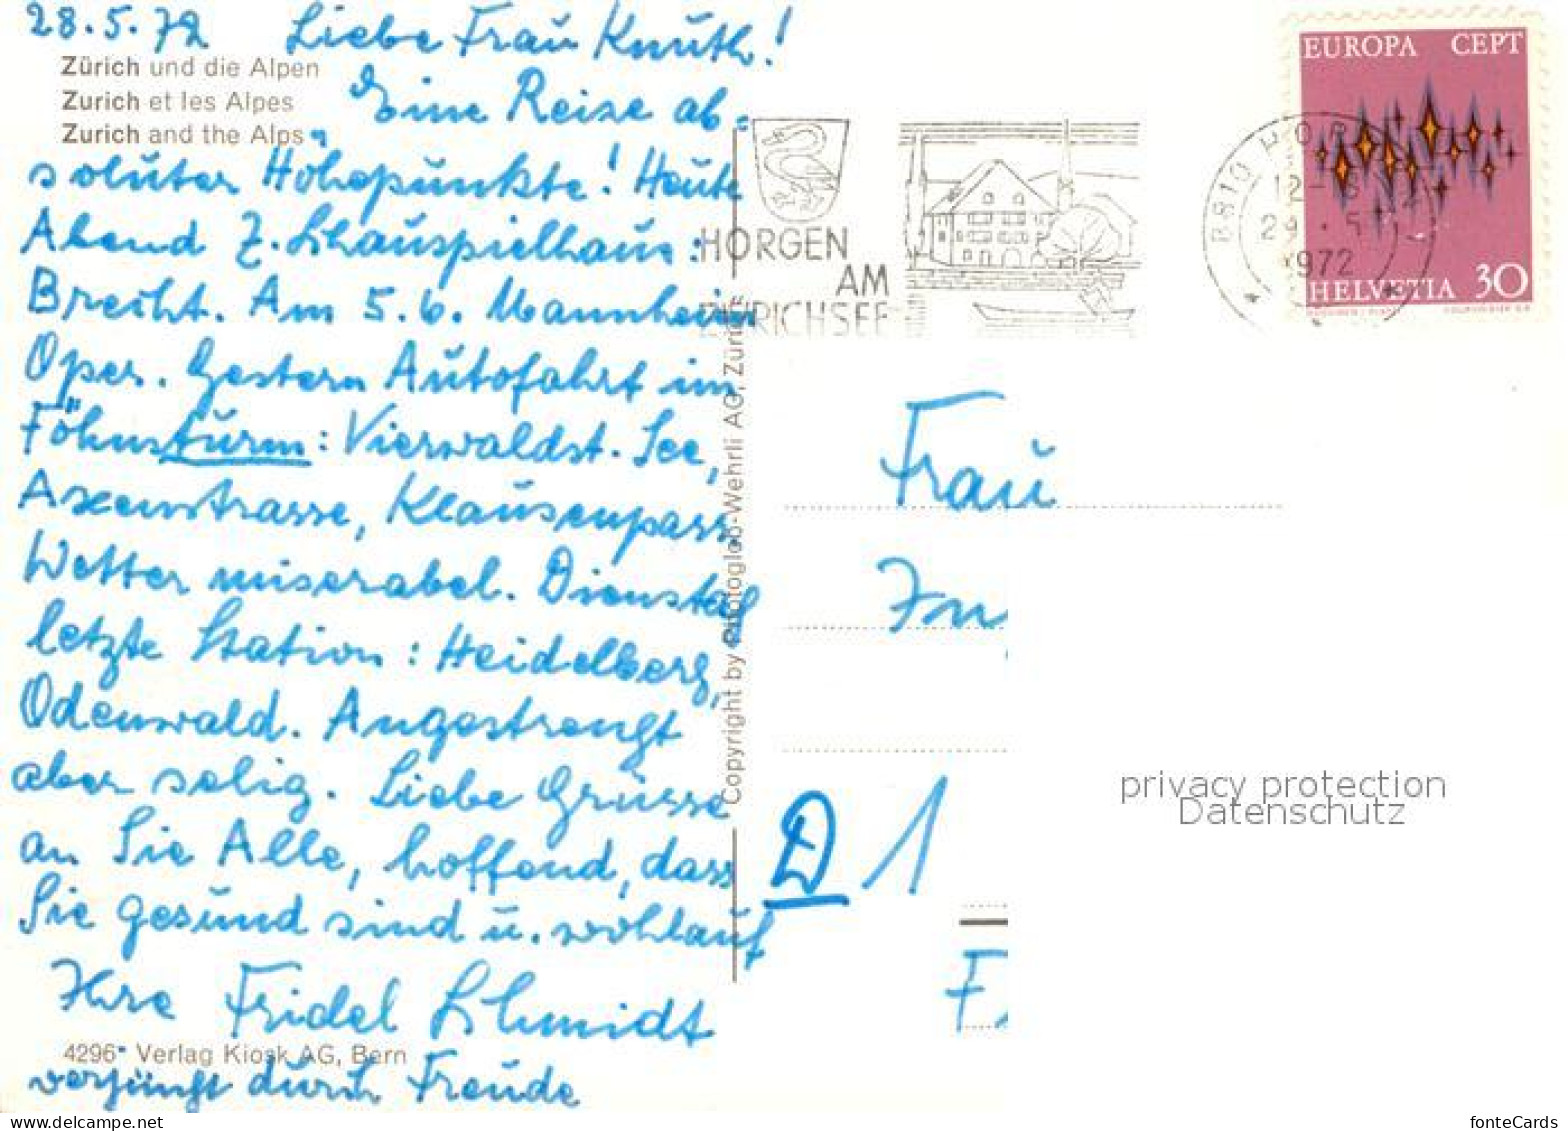 28.5.72 Liebe Frau Knuth!
Zürich und die Alpen
Zurich et les Alpes
Zurich and the Alps
Eine Reise ab-
soluter Höhepunkte! Heute
Abend Z. Schauspielhaus:
Brecht. Am 5.6. Mannheim
Oper. Gestern Autofahrt im
Föhnsturm: Vierwaldst. See,
Axenstrasse, Klausenpass.
Wetter miserabel. Dienstag
letzte Station: Heidelberg,
Odenwald. Angestrengt
aber selig. Liebe Grüsse
an Sie Alle, hoffend, dass
Sie gesund sind u. wohlauf
Ihre Fridel Schmidt
4296 Verlag Kiosk AG, Bern
verjüngt durch Freude
Copyright by Photoglob-Wehrli AG, Zürich
HORGEN
AM
ZÜRICHSEE
8810 HORGEN
12-
29.5.
1972
EUROPA CEPT
HELVETIA 30
Frau
D 1
privacy protection
Datenschutz
www.delcampe.net
fonteCards